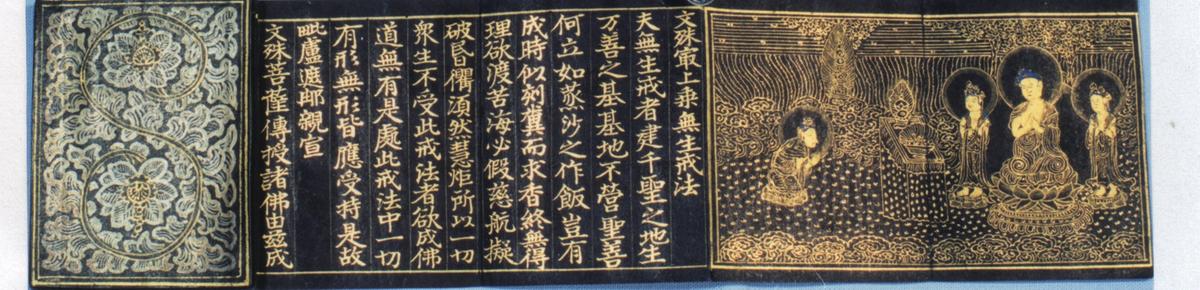 文殊㝡上乘無生戒法
夫無生戒者建千聖之地生
万善之基基地不營聖善
何立如蒸沙之作飯豈有
成時似刻糞而求香終無得
理欲渡苦海必假慈航擬
破昏衢須然慧炬所以一切
衆生不受此戒法者欲成佛
道無有是處此戒法中一切
有形無形皆應受持是故
毗盧遮那親宣
文殊菩薩傳授諸佛由茲成